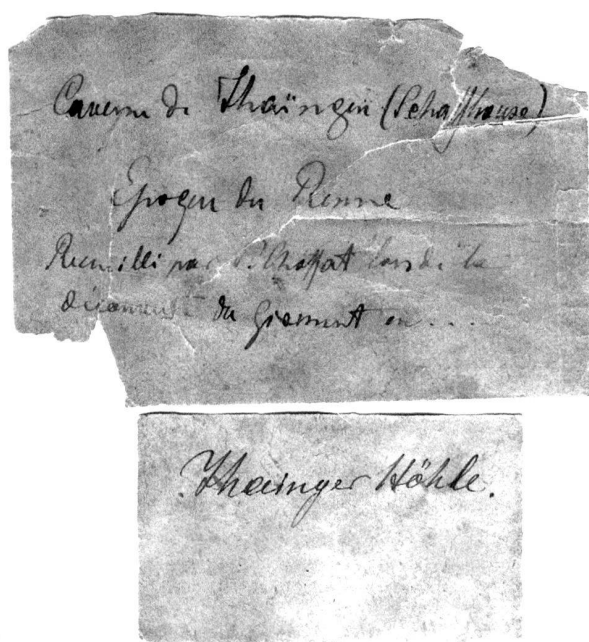 Caverne de Thaïngen (Schaffhouse)
Epoque du Renne
Recueilli par P. Choffat lors de la
découverte du gisement en ....
Thainger Höhle.